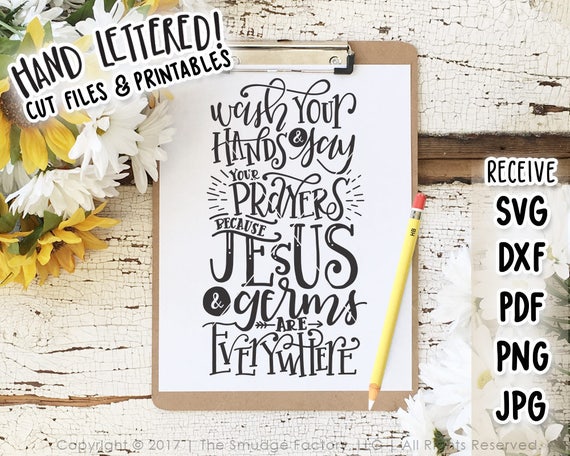 HAND LETTERED!
CUT FILES & PRINTABLES
wash YOUR
HANDS & say
YOUR
PRAYERS
BECAUSE
JESUS
& germs
ARE
EVERYWHERE
HB
RECEIVE
SVG
DXF
PDF
PNG
JPG
Copyright © 2017 | The Smudge Factory, LLC | All Rights Reserved.